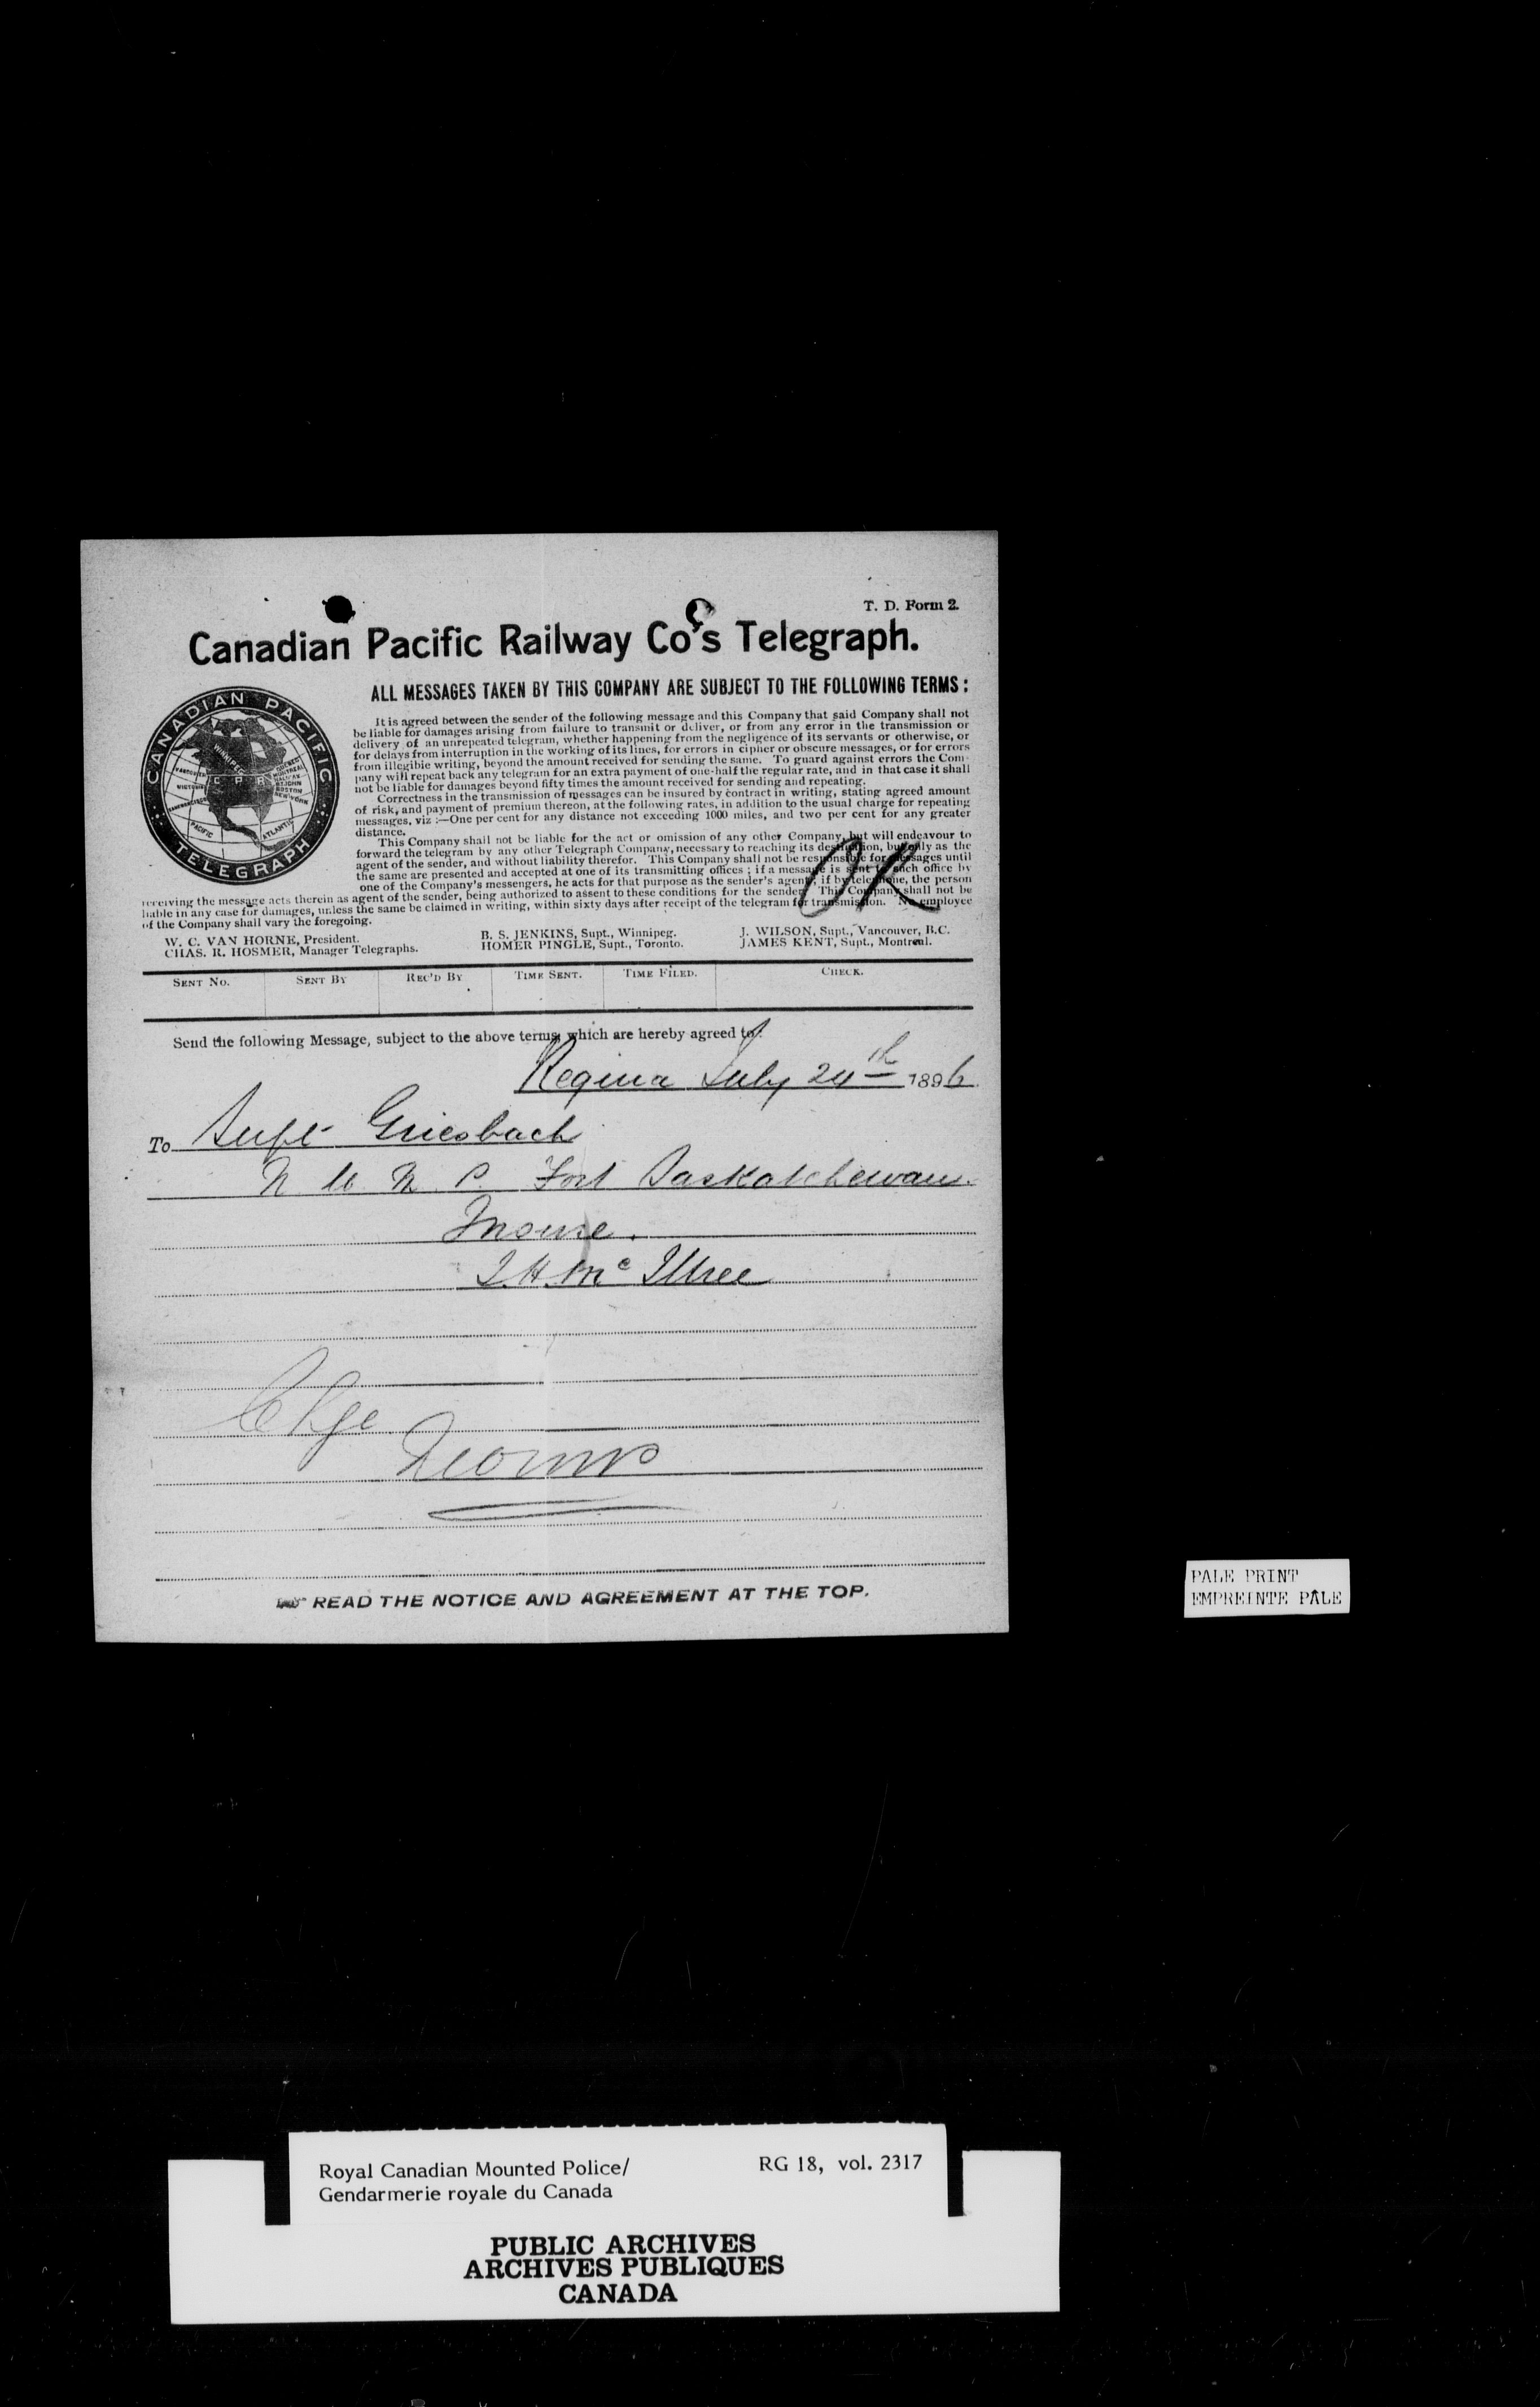 T. D. Form 2.
Canadian Pacific Railway Co's Telegraph.
ALL MESSAGES TAKEN BY THIS COMPANY ARE SUBJECT TO THE FOLLOWING TERMS:
CANADIAN PACIFIC
TELEGRAPH
WINNIPEG
C P R
PACIFIC
ATLANTIC
It is agreed between the sender of the following message and this Company that said Company shall not
be liable for damages arising from failure to transmit or deliver, or from any error in the transmission or
delivery of an unrepeated telegram, whether happening from the negligence of its servants or otherwise, or
for delays from interruption in the working of its lines, for errors in cipher or obscure messages, or for errors
from illegible writing, beyond the amount received for sending the same. To guard against errors the Com-
pany will repeat back any telegram for an extra payment of one-half the regular rate, and in that case it shall
not be liable for damages beyond fifty times the amount received for sending and repeating.
Correctness in the transmission of messages can be insured by contract in writing, stating agreed amount
of risk, and payment of premium thereon, at the following rates, in addition to the usual charge for repeating
messages, viz :—One per cent for any distance not exceeding 1000 miles, and two per cent for any greater
distance.
This Company shall not be liable for the act or omission of any other Company, but will endeavour to
forward the telegram by any other Telegraph Company, necessary to reaching its destination, but only as the
agent of the sender, and without liability therefor. This Company shall not be responsible for messages until
the same are presented and accepted at one of its transmitting offices ; if a message is sent to such office by
one of the Company's messengers, he acts for that purpose as the sender's agent; if by telephone, the person
receiving the message acts therein as agent of the sender, being authorized to assent to these conditions for the sender. This Company shall not be
liable in any case for damages, unless the same be claimed in writing, within sixty days after receipt of the telegram for transmission. No employee
of the Company shall vary the foregoing.
OK
W. C. VAN HORNE, President. B. S. JENKINS, Supt., Winnipeg. J. WILSON, Supt., Vancouver, B.C.
CHAS. R. HOSMER, Manager Telegraphs. HOMER PINGLE, Supt., Toronto. JAMES KENT, Supt., Montreal.
SENT NO. SENT BY REC'D BY TIME SENT. TIME FILED. CHECK.
Send the following Message, subject to the above terms, which are hereby agreed to.
Regina July 24th 1896.
To Supt Griesbach
N W M P. Fort Saskatchewan.
J.H. Mc Illree
Chge
READ THE NOTICE AND AGREEMENT AT THE TOP.
PALE PRINT
EMPREINTE PÂLE
Royal Canadian Mounted Police/ RG 18, vol. 2317
Gendarmerie royale du Canada
PUBLIC ARCHIVES
ARCHIVES PUBLIQUES
CANADA